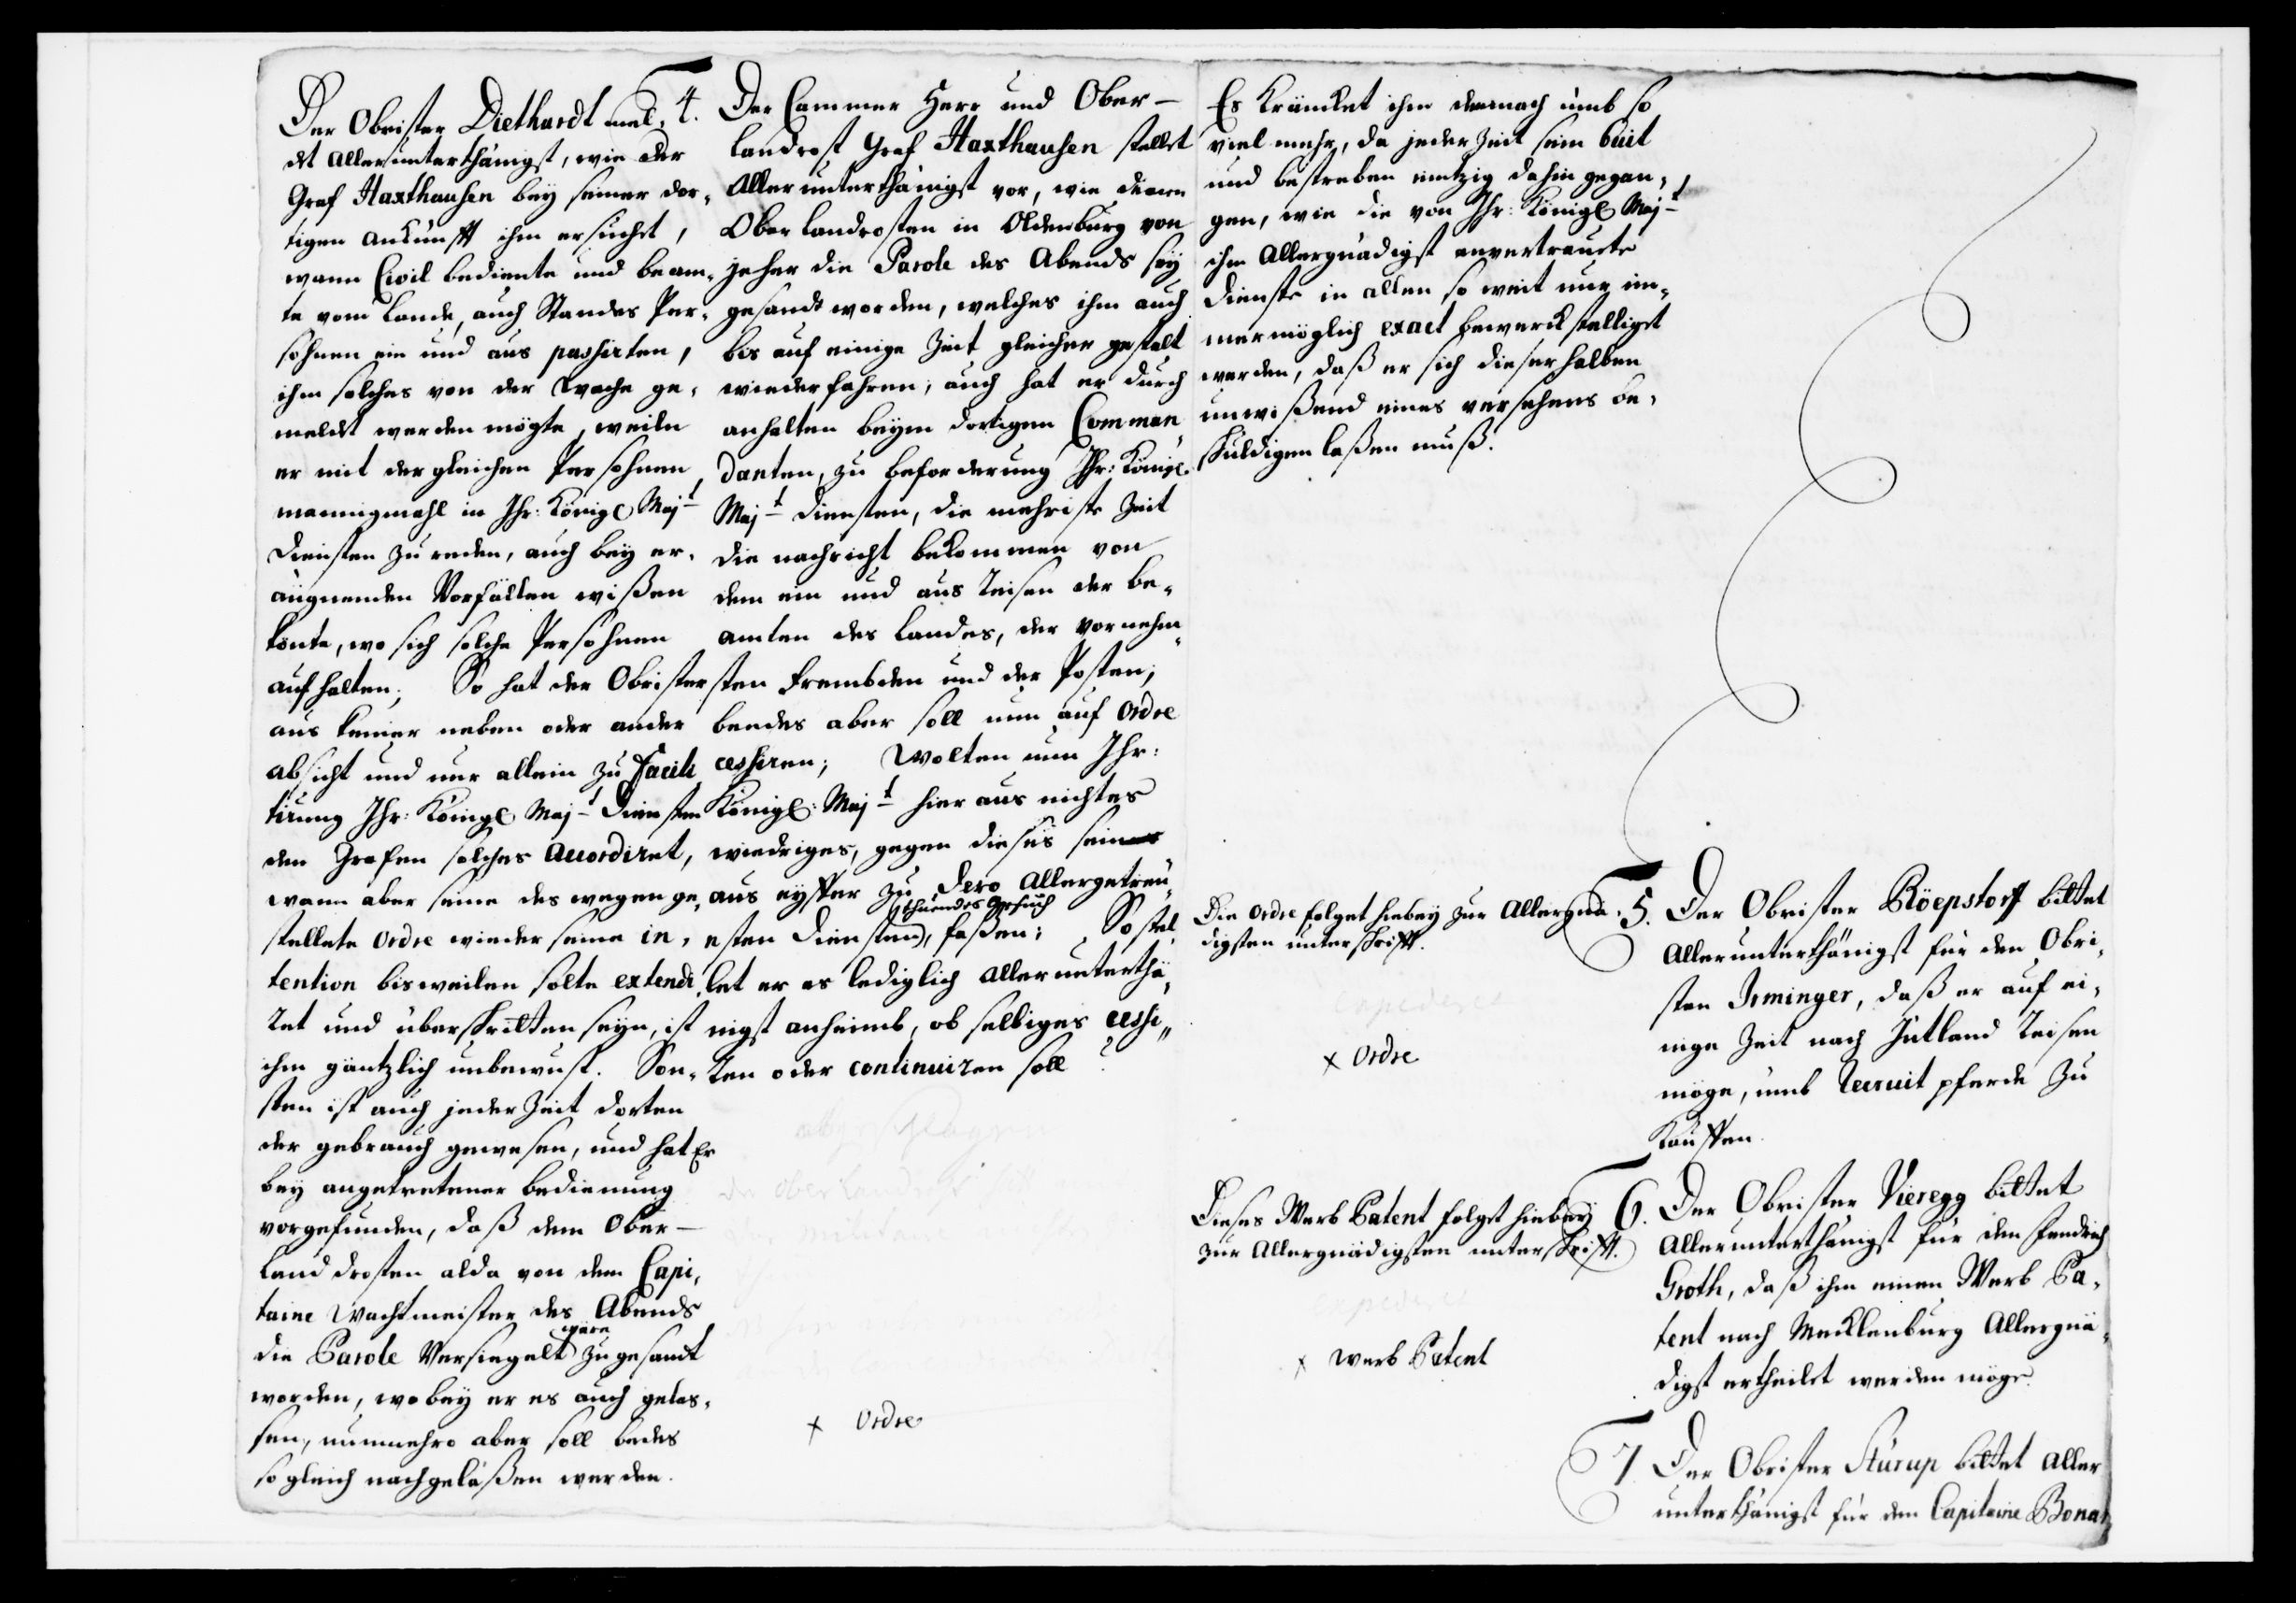 Der Obrister Diethardt mel,
det allerunterthänigst, wie der
Graf Haxthausen bey seiner dor,
tigen ankunfft ihm ersucht,
wann Civil bediente und beam,
te vom Lande, auch Standes Per,
sohnen ein und aus passirten,
ihm solches von der Wache ge,
meldt werden mögte, weiln
er mit dergleichen Persohnen,
mannigmahl in Ihr: Königl Majt
Diensten zu reden, auch bey er,
äugnenden Vorfällen wißen
könte, wo sich solche Persohnen
aufhalten; So hat der Obrister
aus keiner neben oder ander
absicht und nur allein zu facili
tirung Ihr: Königl Majt Diensten
den Grafen solches accordiret,
wann aber seine deswegen ge,
stellete ordre wieder seine in,
tention bisweilen solte extendi,
ret und überschritten seyn, ist
ihm gäntzlich unbewust. Son,
sten ist auch jeder Zeit dorten
der gebrauch gewesen, und hat Er
bey angetretener bedienung
vorgefunden, daß dem Ober-
land drosten alda von dem Capi,
taine Wachtmeister des Abends
die Parole Versiegelt wäre zugesandt
worden, wobey er es auch gelas,
sen, nunmehro aber soll bedes
so gleich nachgelaßen werden.
4. Der Cammer Herr und Ober-
landrost Graf Haxthausen stellet
Allerunterthänigst vor, wie denen
Oberlandrosten in Oldenburg von
jeher die Parole des Abends sey
gesandt worden, welches ihm auch
bis auf einige Zeit gleicher gestalt
wiederfahren, auch hat er durch
anhalten beym dortigen Comman
danten, zu beforderung Ihr: Königl.
Majt Diensten, die mehriste Zeit
die nachricht bekommen von
dem ein und aus reisen der be,
amten des Landes, der vornehm,
sten frembden und der Posten,
beedes aber soll nun auf Ordre
cessiren; Wolten nun Ihr:
Königl: Majt hieraus nichtes
wiedriges, gegen dieses sein
aus eyffer zu Dero Allergetreu,
esten Diensten thuendes Gesuch, faßen; So stel
let er es lediglich allerunterthä,
nigst anheimb, ob selbiges cessi,,
ren oder continuiren soll
x Ordre
Es kräncket ihm demnach umb so
viel mehr, da jeder Zeit sein buit
und bestreben eintzig dahin gegan,
gen, wie die von Ihr: Königl Majt
ihm Allergnädigst anvertraute
Dienste in allen so weit nur im,
mermöglich exact bewerckstelliget
werden, daß er sich dieserhalben
unwißend eines versehens be,
schuldigen laßen muß.
Die Ordre folget hiebey zur Allergnä,
digsten unterschrifft.
x Ordre
5. Der Obrister Röepstorff bittet
Allerunterthänigst für den Obri,
sten Irminger, daß er auf ei,
nige Zeit nach Jütland reisen
möge, umb Recruit pferde zu
Kauffen.
Dieses Werb Patent folget hiebey
zur Allergnädigsten unterschrifft.
x Werb Patent
6. Der Obrister Vieregg bittet
Allerunterthänigst für den Fendrich
Groth, daß ihm einen Werb Pa,
tent nach Mecklenburg Allergnä,
digst ertheilet werden möge.
7. Der Obrister Sturup bittet Aller
unterthänigst für den Capitaine Bonar